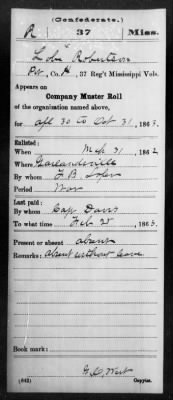 (Confederate.)
R 37 Miss.
Robertson
Pvt, Co. H, 37 Reg't Mississippi Vols.
Appears on
Company Muster Roll
of the organization named above,
for Apl 30 to Oct 31, 1863.
Enlisted:
When Mch 31, 1862
Where Garlandville
By whom J. B. Loper
Period War
Last paid:
By whom Cap Davis
To what time Feb 28, 1863.
Present or absent absent
Remarks: absent without leave
Book mark:
West
(642) Copyist.